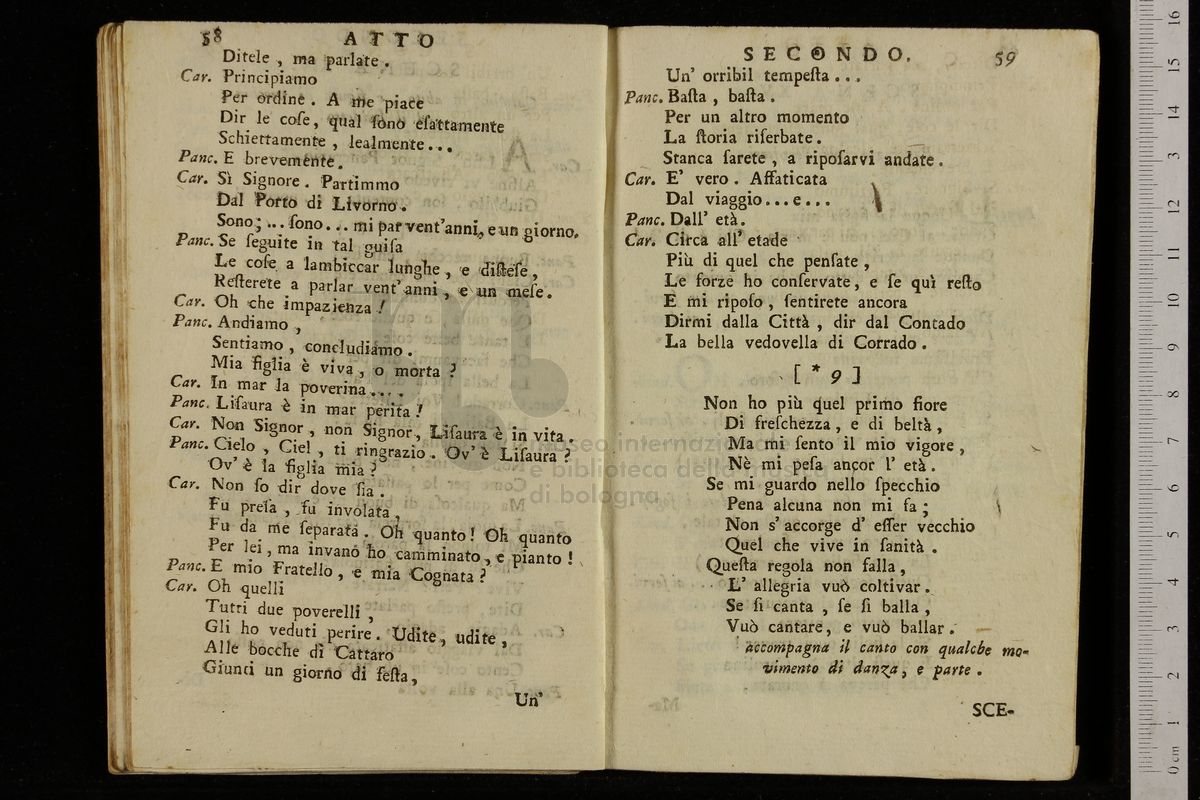 58 ATTO
Ditele , ma parlate .
Car. Principiamo
Per ordine . A me piace
Dir le coſe, qual ſono eſattamente
Schiettamente , lealmente...
Panc. E brevemente.
Car. Sì Signore . Partimmo
Dal Porto di Livorno .
Sono; ... ſono... mi par vent' anni, e un giorno.
Panc. Se ſeguite in tal guiſa
Le coſe a lambiccar lunghe , e diſteſe ,
Reſterete a parlar vent' anni , e un meſe .
Car. Oh che impazienza !
Panc. Andiamo ,
Sentiamo , concludiamo .
Mia figlia è viva , o morta ?
Car. In mar la poverina ....
Panc. Liſaura è in mar perita !
Car. Non Signor , non Signor, Liſaura è in vita .
Panc. Cielo , Ciel , ti ringrazio . Ov' è Liſaura ?
Ov' è la figlia mia ?
Car. Non ſo dir dove ſia .
Fu preſa , fu involata ,
Fu da me ſeparata . Oh quanto ! Oh quanto
Per lei , ma invano ho camminato , e pianto !
Panc. E mio Fratello , e mia Cognata ?
Car. Oh quelli
Tutti due poverelli ,
Gli ho veduti perire . Udite , udite ,
Alle bocche di Cattaro
Giunti un giorno di feſta ,
Un'
SECONDO. 59
Un' orribil tempeſta ...
Panc. Baſta , baſta .
Per un altro momento
La ſtoria riſerbate .
Stanca ſarete , a ripoſarvi andate .
Car. E' vero . Affaticata
Dal viaggio ... e ...
Panc. Dall' età .
Car. Circa all' etade
Più di quel che penſate ,
Le forze ho conſervate , e ſe quì reſto
E mi ripoſo , ſentirete ancora
Dirmi dalla Città , dir dal Contado
La bella vedovella di Corrado .
[ * 9 ]
Non ho più quel primo fiore
Di freſchezza , e di beltà ,
Ma mi ſento il mio vigore ,
Nè mi peſa ancor l' età .
Se mi guardo nello ſpecchio
Pena alcuna non mi fa ;
Non s' accorge d' eſſer vecchio
Quel che vive in ſanità .
Queſta regola non falla ,
L' allegria vuò coltivar .
Se ſi canta , ſe ſi balla ,
Vuò cantare , e vuò ballar .
accompagna il canto con qualche mo-
vimento di danza , e parte .
SCE-
museo internazionale
e biblioteca della musica
di bologna
0 cm 1 2 3 4 5 6 7 8 9 10 11 12 13 14 15 16